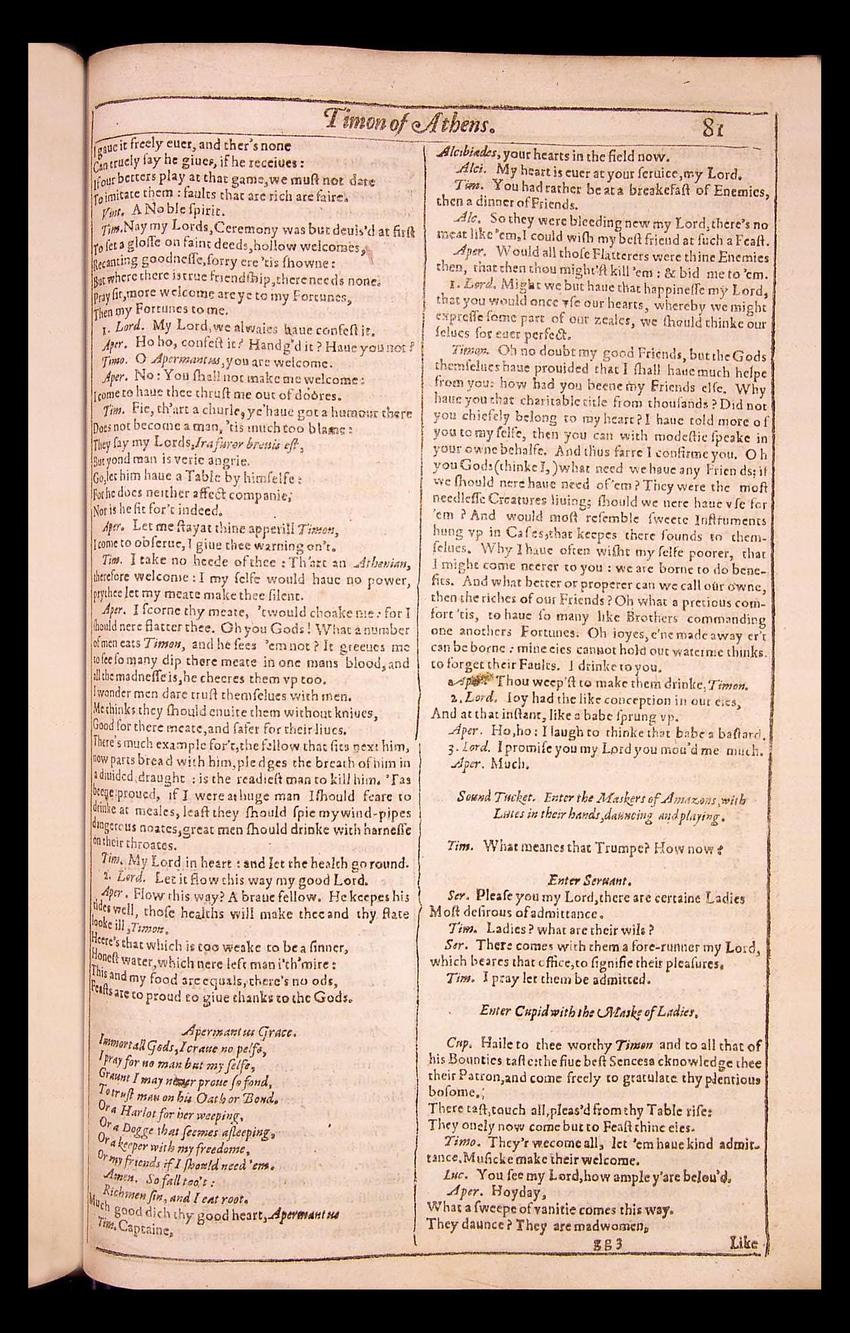 Timon of Athens.
81
I gaue it freely euer, and ther's none
Can truely say he giues, if he receiues:
If our betters play at that game, we must not dare
To imitate them: faults that are rich are faire.
Vint. A Noble spirit.
Tim. Nay my Lords, Ceremony was but deuis'd at first
To set a glosse on faint deeds, hollow welcomes,
Recanting goodnesse, sorry ere 'tis showne:
But where there is true friendship, there needs none.
Pray sit, more welcome are ye to my Fortunes,
Then my Fortunes to me.
1. Lord. My Lord, we alwaies haue confest it.
Aper. Ho ho, confest it? Handg'd it? Haue you not?
Timo. O Apermantus, you are welcome.
Aper. No: You shall not make me welcome:
I come to haue thee thrust me out of doores.
Tim. Fie, th'art a churle, ye'haue got a humour there
Does not become a man, 'tis much too blame:
They say my Lords, Ira furor breuis est,
But yond man is verie angrie.
Go, let him haue a Table by himselfe:
For he does neither affect companie,
Nor is he fit for't indeed.
Aper. Let me stay at thine apperill Timon,
I come to obserue, I giue thee warning on't.
Tim. I take no heede of thee: Th'art an Athenian,
therefore welcome: I my selfe would haue no power,
prythee let my meate make thee silent.
Aper. I scorne thy meate, 'twould choake me: for I
should nere flatter thee. Oh you Gods! What a number
of men eats Timon, and he sees 'em not? It greeues me
to see so many dip there meate in one mans blood, and
all the madnesse is, he cheeres them vp too.
I wonder men dare trust themselues with men.
Me thinks they should enuite them without kniues,
Good for there meate, and safer for their liues.
There's much example for't, the fellow that sits next him,
now parts bread with him, pledges the breath of him in
a diuided draught: is the readiest man to kill him. 'Tas
beene proued, if I were a huge man I should feare to
drinke at meales, least they should spie my wind-pipes
dangerous noates, great men should drinke with harnesse
on their throates.
Tim. My Lord in heart: and let the health go round.
2. Lord. Let it flow this way my good Lord.
Aper. Flow this way? A braue fellow. He keepes his
tides well, those healths will make thee and thy state
looke ill, Timon.
Heere's that which is too weake to be a sinner,
Honest water, which nere left man i'th'mire:
This and my food are equals, there's no ods,
Feasts are to proud to giue thanks to the Gods.
Apermantus Grace.
Immortall Gods, I craue no pelfe,
I pray for no man but my selfe,
Graunt I may neuer proue so fond,
To trust man on his Oath or Bond.
Or a Harlot for her weeping,
Or a Dogge that seemes asleeping,
Or a keeper with my freedome,
Or my friends if I should need 'em.
Amen. So fall too't:
Richmen sin, and I eat root.
Much good dich thy good heart, Apermantus
Tim. Captaine,
Alcibiades, your hearts in the field now.
Alci. My heart is euer at your seruice, my Lord.
Tim. You had rather be at a breakefast of Enemies,
then a dinner of Friends.
Alc. So they were bleeding new my Lord, there's no
meat like 'em, I could wish my best friend at such a Feast.
Aper. Would all those Flatterers were thine Enemies
then, that then thou might'st kill 'em: & bid me to 'em.
1. Lord. Might we but haue that happinesse my Lord,
that you would once vse our hearts, whereby we might
expresse some part of our zeales, we should thinke our
selues for euer perfect.
Timon. Oh no doubt my good Friends, but the Gods
themselues haue prouided that I shall haue much helpe
from you: how had you beene my Friends else. Why
haue you that charitable title from thousands? Did not
you chiefely belong to my heart? I haue told more of
you to my selfe, then you can with modestie speake in
your owne behalfe. And thus farre I confirme you. Oh
you Gods (thinke I,) what need we haue any Friends; if
we should nere haue need of 'em? They were the most
needlesse Creatures liuing; should we nere haue vse for
'em? And would most resemble sweete Instruments
hung vp in Cases, that keepes there sounds to them-
selues. Why I haue often wisht my selfe poorer, that
I might come neerer to you: we are borne to do bene-
fits. And what better or properer can we call our owne,
then the riches of our Friends? Oh what a pretious com-
fort 'tis, to haue so many like Brothers commanding
one anothers Fortunes. Oh ioyes, e'ne made away er't
can be borne: mine eies cannot hold out water me thinks.
to forget their Faults. I drinke to you.
Aper. Thou weep'st to make them drinke, Timon.
2. Lord. Ioy had the like conception in our eies,
And at that instant, like a babe sprung vp.
Aper. Ho, ho: I laugh to thinke that babe a bastard.
3. Lord. I promise you my Lord you mou'd me much.
Aper. Much.
Sound Tucket. Enter the Maskers of Amazons, with
Lutes in their hands, dauncing and playing.
Tim. What meanes that Trumpe? How now?
Enter Seruant.
Ser. Please you my Lord, there are certaine Ladies
Most desirous of admittance.
Tim. Ladies? what are their wils?
Ser. There comes with them a fore-runner my Lord,
which beares that office, to signifie their pleasures.
Tim. I pray let them be admitted.
Enter Cupid with the Maske of Ladies.
Cup. Haile to thee worthy Timon and to all that of
his Bounties taste: the fiue best Sencesa cknowledge thee
their Patron, and come freely to gratulate thy plentious
bosome.;
There tast, touch all, pleas'd from thy Table rise:
They onely now come but to Feast thine eies.
Timo. They'r wecome all, let 'em haue kind admit-
tance. Musicke make their welcome.
Luc. You see my Lord, how ample y'are belou'd.
Aper. Hoyday,
What a sweepe of vanitie comes this way.
They daunce? They are madwomen,
gg3
Like